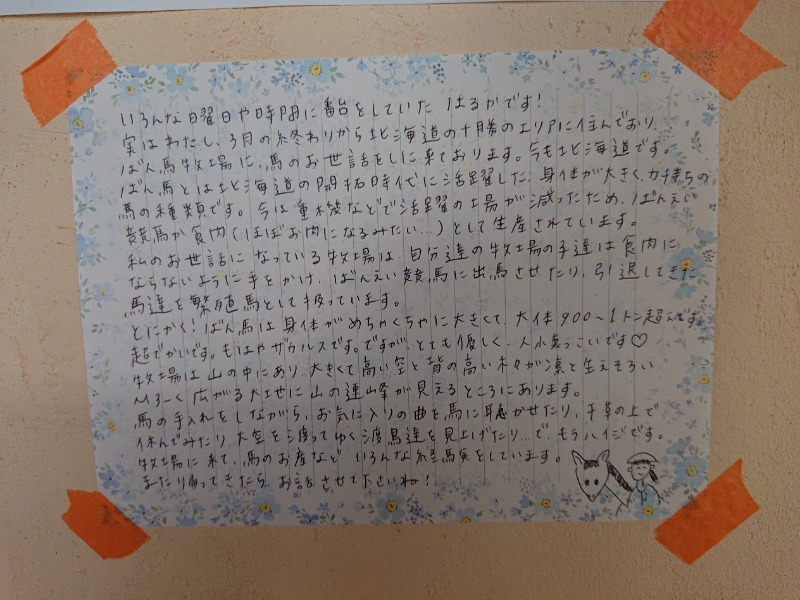 いろんな日曜日や時間に番台をしていた はるかです!
実はわたし、3月の終わりから北海道の十勝のエリアに住んでおり、
ばん馬牧場に、馬のお世話をしに来ております。今も北海道です。
ばん馬とは北海道の開拓時代に活躍した、身体が大きく、力持ちの
馬の種類です。今は重機などで活躍の場が減ったため、ばんえい
競馬か食肉(ほぼお肉になるみたい…)として生産されています。
私のお世話になっている牧場は、自分達の牧場の子達は食肉に
ならないように手をかけ、ばんえい競馬に出馬させたり、引退してきた
馬達を繁殖馬として扱っています。
とにかく!ばん馬は身体がめちゃくちゃに大きくて、大体900〜1トン超えです。
超でかいです。もはやザウルスです。ですが、とても優しく、人小真っこいです♡
牧場は山の中にあり、大きくて高い空と背の高い木々が凛と生えそろい
ひろーく広がる大地に山の連峰が見えるところにあります。
馬の手入れをしながら、お気に入りの曲を馬に聴かせたり、干草の上で
休んでみたり、大空を渡ってゆく渡鳥達を見上げたり…で、もうハイジです。
牧場に来て、馬のお産など いろんな経験をしています。
またり帰ってきたら、お話させて下さいね!